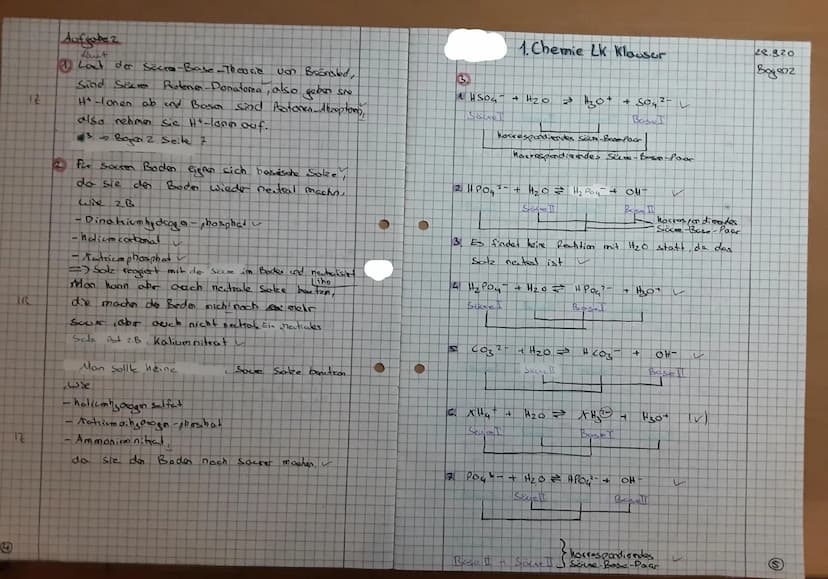 Aufgabe 2
① Laut der Säure-Base-Theorie von Brönsted,
sind Säuren Protonen-Donatoren, also geben sie
H⁺-Ionen ab und Basen sind Protonen-Akzeptoren,
also nehmen sie H⁺-Ionen auf.
*3 → Bogen 2 Seite 7
② Für sauren Boden eignen sich basische Salze,
da sie den Boden wieder neutral machen.
wie z.B
- Dinatriumhydrogen-phosphat ✓
- Kaliumcarbonat ✓
- Natriumphosphat ✓
=> Salz reagiert mit der Säure im Boden und neutralisiert
ihn
Man kann aber auch neutrale Salze benutzen,
die machen den Boden nicht noch mehr
sauer, aber auch nicht neutral. Ein neutrales
Salz ist z.B. Kaliumnitrat ✓
Man sollte keine saure Salze benutzen
, wie
- Kaliumhydrogensulfat
- Natriumdihydrogen-phosphat
- Ammoniumnitrat,
da sie den Boden noch saurer machen. ✓
④
1. Chemie LK Klausur
Bogen 2
③
1. HSO₄⁻ + H₂O ⇌ H₃O⁺ + SO₄²⁻ ✓
Säure I Base I
Korrespondierendes Säure-Base-Paar
Korrespondierendes Säure-Base-Paar
2. HPO₄²⁻ + H₂O ⇌ H₂PO₄⁻ + OH⁻ ✓
Säure II Base II
Korrespondierendes
Säure-Base-Paar
3. Es findet keine Reaktion mit H₂O statt, da das
Salz neutral ist ✓
4. H₂PO₄⁻ + H₂O ⇌ HPO₄²⁻ + H₃O⁺ ✓
Säure I Base I
5. CO₃²⁻ + H₂O ⇌ HCO₃⁻ + OH⁻ ✓
Säure II Base II
6. NH₄⁺ + H₂O ⇌ NH₃ + H₃O⁺ (✓)
Säure I Base I
7. PO₄³⁻ + H₂O ⇌ HPO₄²⁻ + OH⁻ ✓
Säure II Base II
Base II + Säure II } Korrespondierendes
Säure-Base-Paar ✓
⑤